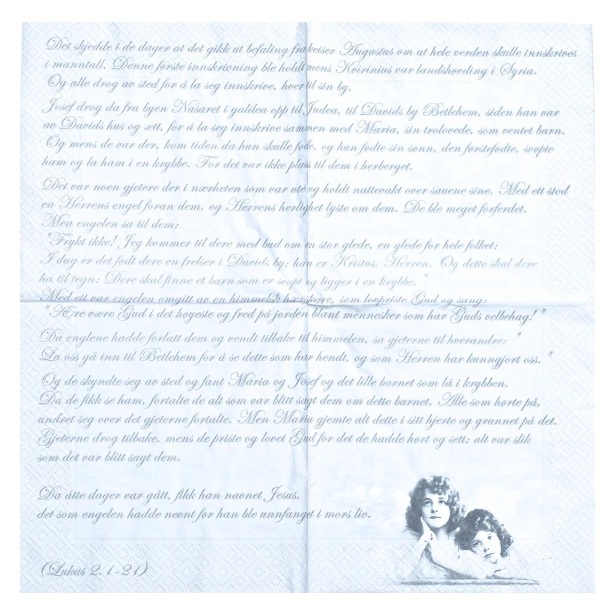 Det skjedde i de dager at det gikk ut befaling fra keiser Augustus om at hele verden skulle innskrives
i manntall. Denne første innskrivning ble holdt mens Kvirinius var landshøvding i Syria.
Og alle drog av sted for å la seg innskrive, hver til sin by.
Josef drog da fra byen Nasaret i galilea opp til Judea, til Davids by Betlehem, siden han var
av Davids hus og ætt, for å la seg innskrive sammen med Maria, sin trolovede, som ventet barn.
Og mens de var der, kom tiden da hun skulle føde, og hun fødte sin sønn, den førstefødte, svøpte
ham og la ham i en krybbe. For det var ikke plass til dem i herberget.
Det var noen gjetere der i nærheten som var ute og holdt nattevakt over sauene sine. Med ett stod
en Herrens engel foran dem, og Herrens herlighet lyste om dem. De ble meget forferdet.
Men engelen sa til dem:
"Frykt ikke! Jeg kommer til dere med bud om en stor glede, en glede for hele folket:
I dag er det født dere en frelser i Davids by; han er Kristus, Herren. Og dette skal dere
ha til tegn: Dere skal finne et barn som er svøpt og ligger i en krybbe."
Med ett var engelen omgitt av en himmelsk hærskare, som lovpriste Gud og sang:
"Ære være Gud i det høyeste og fred på jorden blant mennesker som har Guds velbehag!"
Da englene hadde forlatt dem og vendt tilbake til himmelen, sa gjeterne til hverandre: "
La oss gå inn til Betlehem for å se dette som har hendt, og som Herren har kunngjort oss. "
Og de skyndte seg av sted og fant Maria og Josef og det lille barnet som lå i krybben.
Da de fikk se ham, fortalte de alt som var blitt sagt dem om dette barnet. Alle som hørte på,
undret seg over det gjeterne fortalte. Men Maria gjemte alt dette i sitt hjerte og grunnet på det.
Gjeterne drog tilbake, mens de priste og lovet Gud for det de hadde hørt og sett; alt var slik
som det var blitt sagt dem.
Da åtte dager var gått, fikk han navnet Jesus,
det som engelen hadde nevnt før han ble unnfanget i mors liv.
(Lukas 2, 1-21)